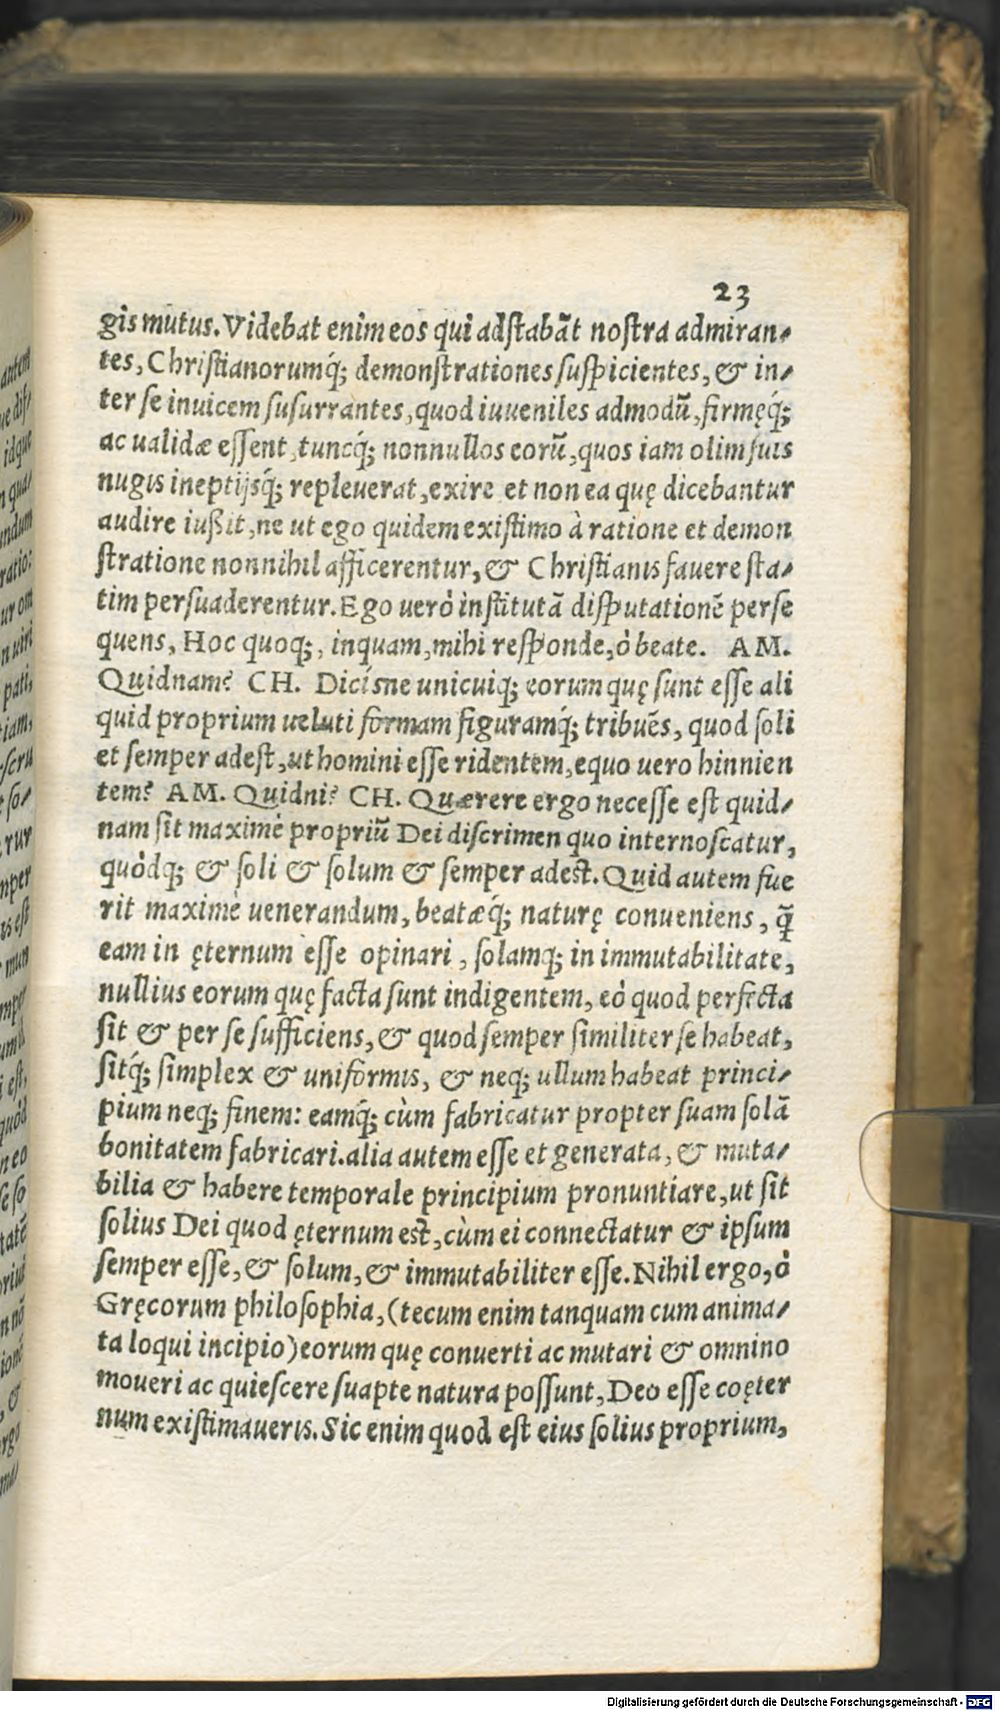 23
gis mutus. Videbat enim eos qui adſtabãt noſtra admiran⸗
tes, Chriſtianorumq́; demonſtrationes ſuſpicientes, & in⸗
ter ſe inuicem ſuſurrantes, quod iuueniles admodũ, firmęq́;
ac ualidæ eſſent, tuncq́; nonnullos eorũ, quos iam olim ſuis
nugis ineptijsq́; repleuerat, exire et non ea quę dicebantur
audire iußit, ne ut ego quidem exiſtimo à ratione et demon
ſtratione nonnihil afficerentur, & Chriſtianis fauere ſta⸗
tim perſuaderentur. Ego uerò inſtitutã diſputationẽ perſe
quens, Hoc quoq;, inquam, mihi reſponde, ò beate. AM.
Quidnam? CH. Dicísne unicuiq; eorum quę ſunt eſſe ali
quid proprium ueluti formam figuramq́; tribuẽs, quod ſoli
et ſemper adeſt, ut homini eſſe ridentem, equo uero hinnien
tem? AM. Quidni? CH. Quærere ergo neceſſe eſt quid⸗
nam ſit maximè propriũ Dei diſcrimen quo internoſcatur,
quòdq; & ſoli & ſolum & ſemper adest. Quid autem fue
rit maximè uenerandum, beatæq́; naturę conueniens, q̃
eam in ęternum eſſe opinari, ſolamq; in immutabilitate,
nullius eorum quę facta ſunt indigentem, eò quod perfecta
ſit & per ſe ſufficiens, & quod ſemper ſimiliter ſe habeat,
ſitq́; ſimplex & uniformis, & neq; ullum habeat princi⸗
pium neq; finem: eamq́; cùm fabricatur propter ſuam ſolã
bonitatem fabricari. alia autem eſſe et generata, & muta⸗
bilia & habere temporale principium pronuntiare, ut ſit
ſolius Dei quod ęternum est, cùm ei connectatur & ipſum
ſemper eſſe, & ſolum, & immutabiliter eſſe. Nihil ergo, ò
Gręcorum philoſophia, (tecum enim tanquam cum anima⸗
ta loqui incipio) eorum quę conuerti ac mutari & omnino
moueri ac quieſcere ſuapte natura poſſunt, Deo eſſe coęter
num exiſtimaueris. Sic enim quod eſt eius ſolius proprium,
Digitalisierung gefördert durch die Deutsche Forschungsgemeinschaft - DFG